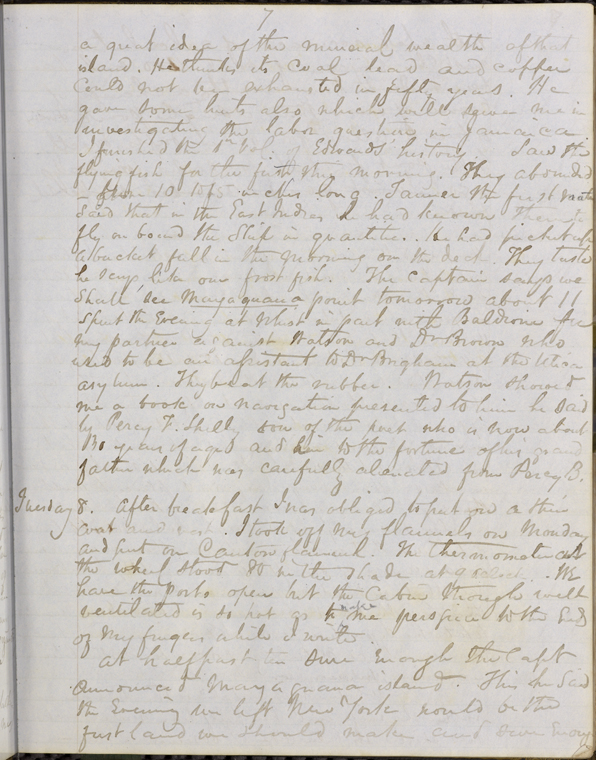 7
a great idea of the mineral wealth of that
island. He thinks its Coal lead and copper
Could not be exhausted in fifty years. He
gave some hints also which will serve me in
investigating the labor question in Jamaica.
I finished the 1st Vol. of Edwards' history. Saw the
flying fish for the first this morning. They abounded
– from 10 to 15 inches long. Tanner the first mate
said that in the East Indies he had known them to
fly on board the Ship in quantities. he had picked up
a bucket full in the morning on the deck. They taste
he says, like our frost fish. The Captain says we
shall see Mayaguana point tomorrow about 11
Spent the Evening at Whist in part with Baldwin for
my partner against Watson and Dr Brown who
used to be an assistant to Dr Brigham at the Utica
asylum. They beat the rubber. Watson showed
me a book on navigation presented to him he said
by Percy F. Shelly son of the poet who is now about
30 years of aged and heir to the fortune of his grand
father which was carefully alienated from Percy B.
Tuesday 8. After breakfast I was obliged to put on a thin
coat and vest. I took off my flannels on Monday
and put on Canton flannel. The thermometer at
the wheel stood 80 in the shade at 9 oclock. We
have the ports open but the Cabin though well
ventilated is so hot as to make me perspire to the End
of my fingers while I write.
at half past ten Sure Enough the Capt
announced Mayaguana island. This he Said
the Evening we left New York would be the
first land we should make and Sure Enough